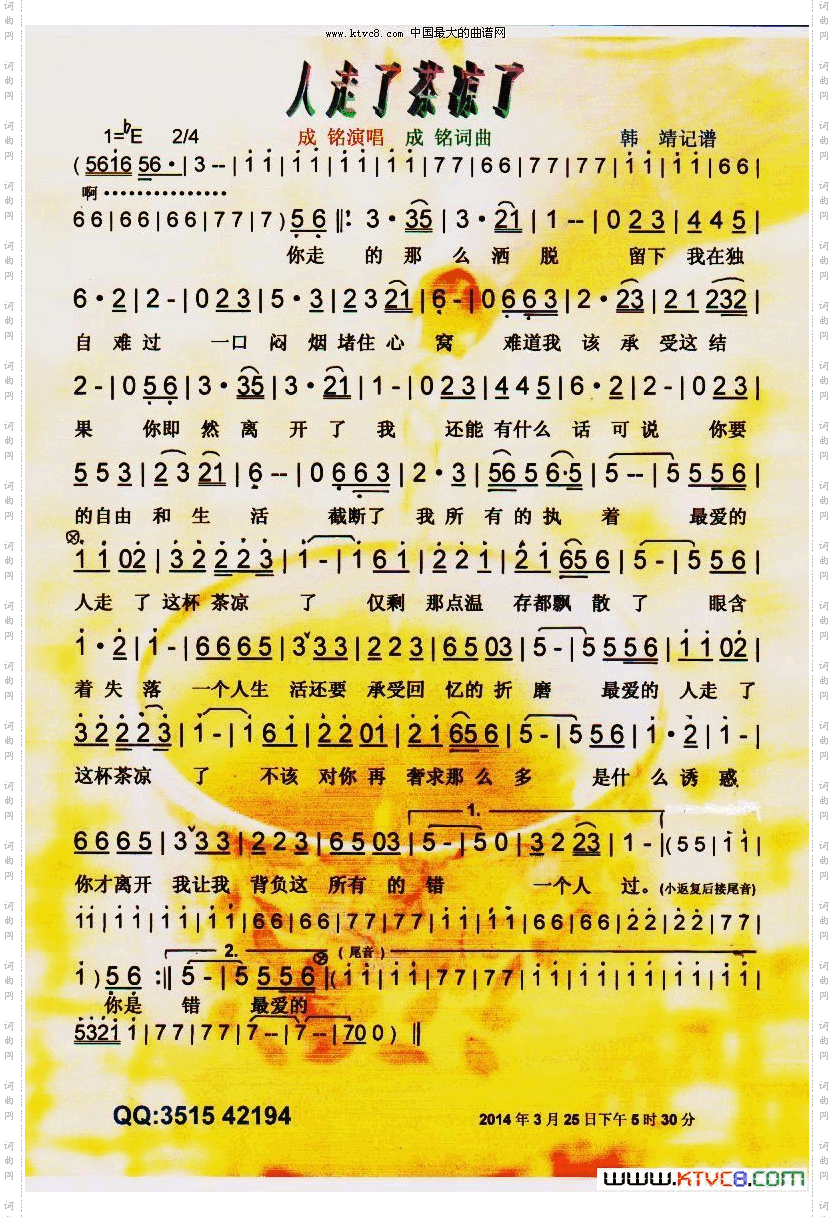 www.ktvc8.com 中国最大的曲谱网
人走了茶凉了
1=♭E 2/4 成 铭演唱 成 铭词曲 韩 靖记谱
(5616 56·|3--|11|11|11|11|77|66|77|11|11|66|
啊···············
66|66|66|77|7)56‖:3·35|3·21|1--|023|445|
你走 的 那 么 洒 脱 留下 我在独
6·2|2-|023|5·3|2321|6-|0663|2·23|21232|
自 难 过 一口 闷 烟 堵住 心 窝 难道我 该 承 受这 结
2-|056|3·35|3·21|1-|023|445|6·2|2-|023|
果 你即 然 离 开 了 我 还能 有什么 话 可 说 你要
553|2321|6--|0663|2·3|5656·5|5--|5556|
的自由 和 生 活 截断了 我 所 有 的 执 着 最爱的
1102|32223|1-|161|221|21656|5-|556|
人走 了 这杯 茶凉 了 仅剩 那点温 存都飘 散 了 眼含
1·2|1-|6665|333|223|6503|5-|5556|1102|
着 失 落 一个人生 活还要 承受回 忆的 折 磨 最爱的 人走 了
32223|1-|161|2201|21656|5-|556|1·2|1-|
这杯茶凉 了 不该 对你 再 奢求那 么 多 是什 么 诱 惑
1.
6665|333|223|6503|5-|50|3223|1-|(55|11|
你才离开 我让我 背负这 所有 的 错 一个人 过。(小返复后接尾音)
11|11|11|11|66|66|77|77|11|11|66|66|22|22|77|
2. (尾音)
1)56:‖5-|5556‖(11|11|77|77|11|11|11|11|11|11|
你是 错 最爱的
5321 1|77|77|7--|7--|700)‖
QQ:3515 42194 2014 年 3 月 25 日下午 5 时 30 分
www.KTVC8.com
词曲网